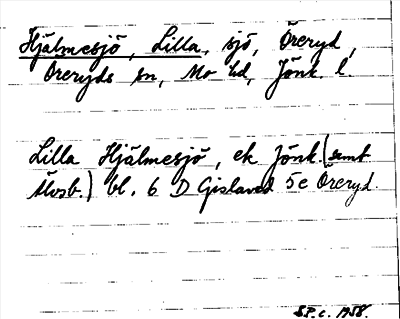 Hjälmesjö, Lilla, sjö, Öreryd,
Öreryds sn, Mo hd, Jönk. l.
Lilla Hjälmesjö, ek Jönk. (samt
Älvsb.) bl. 6 D Gislaved 5e Öreryd.
S.P.c. 1958.